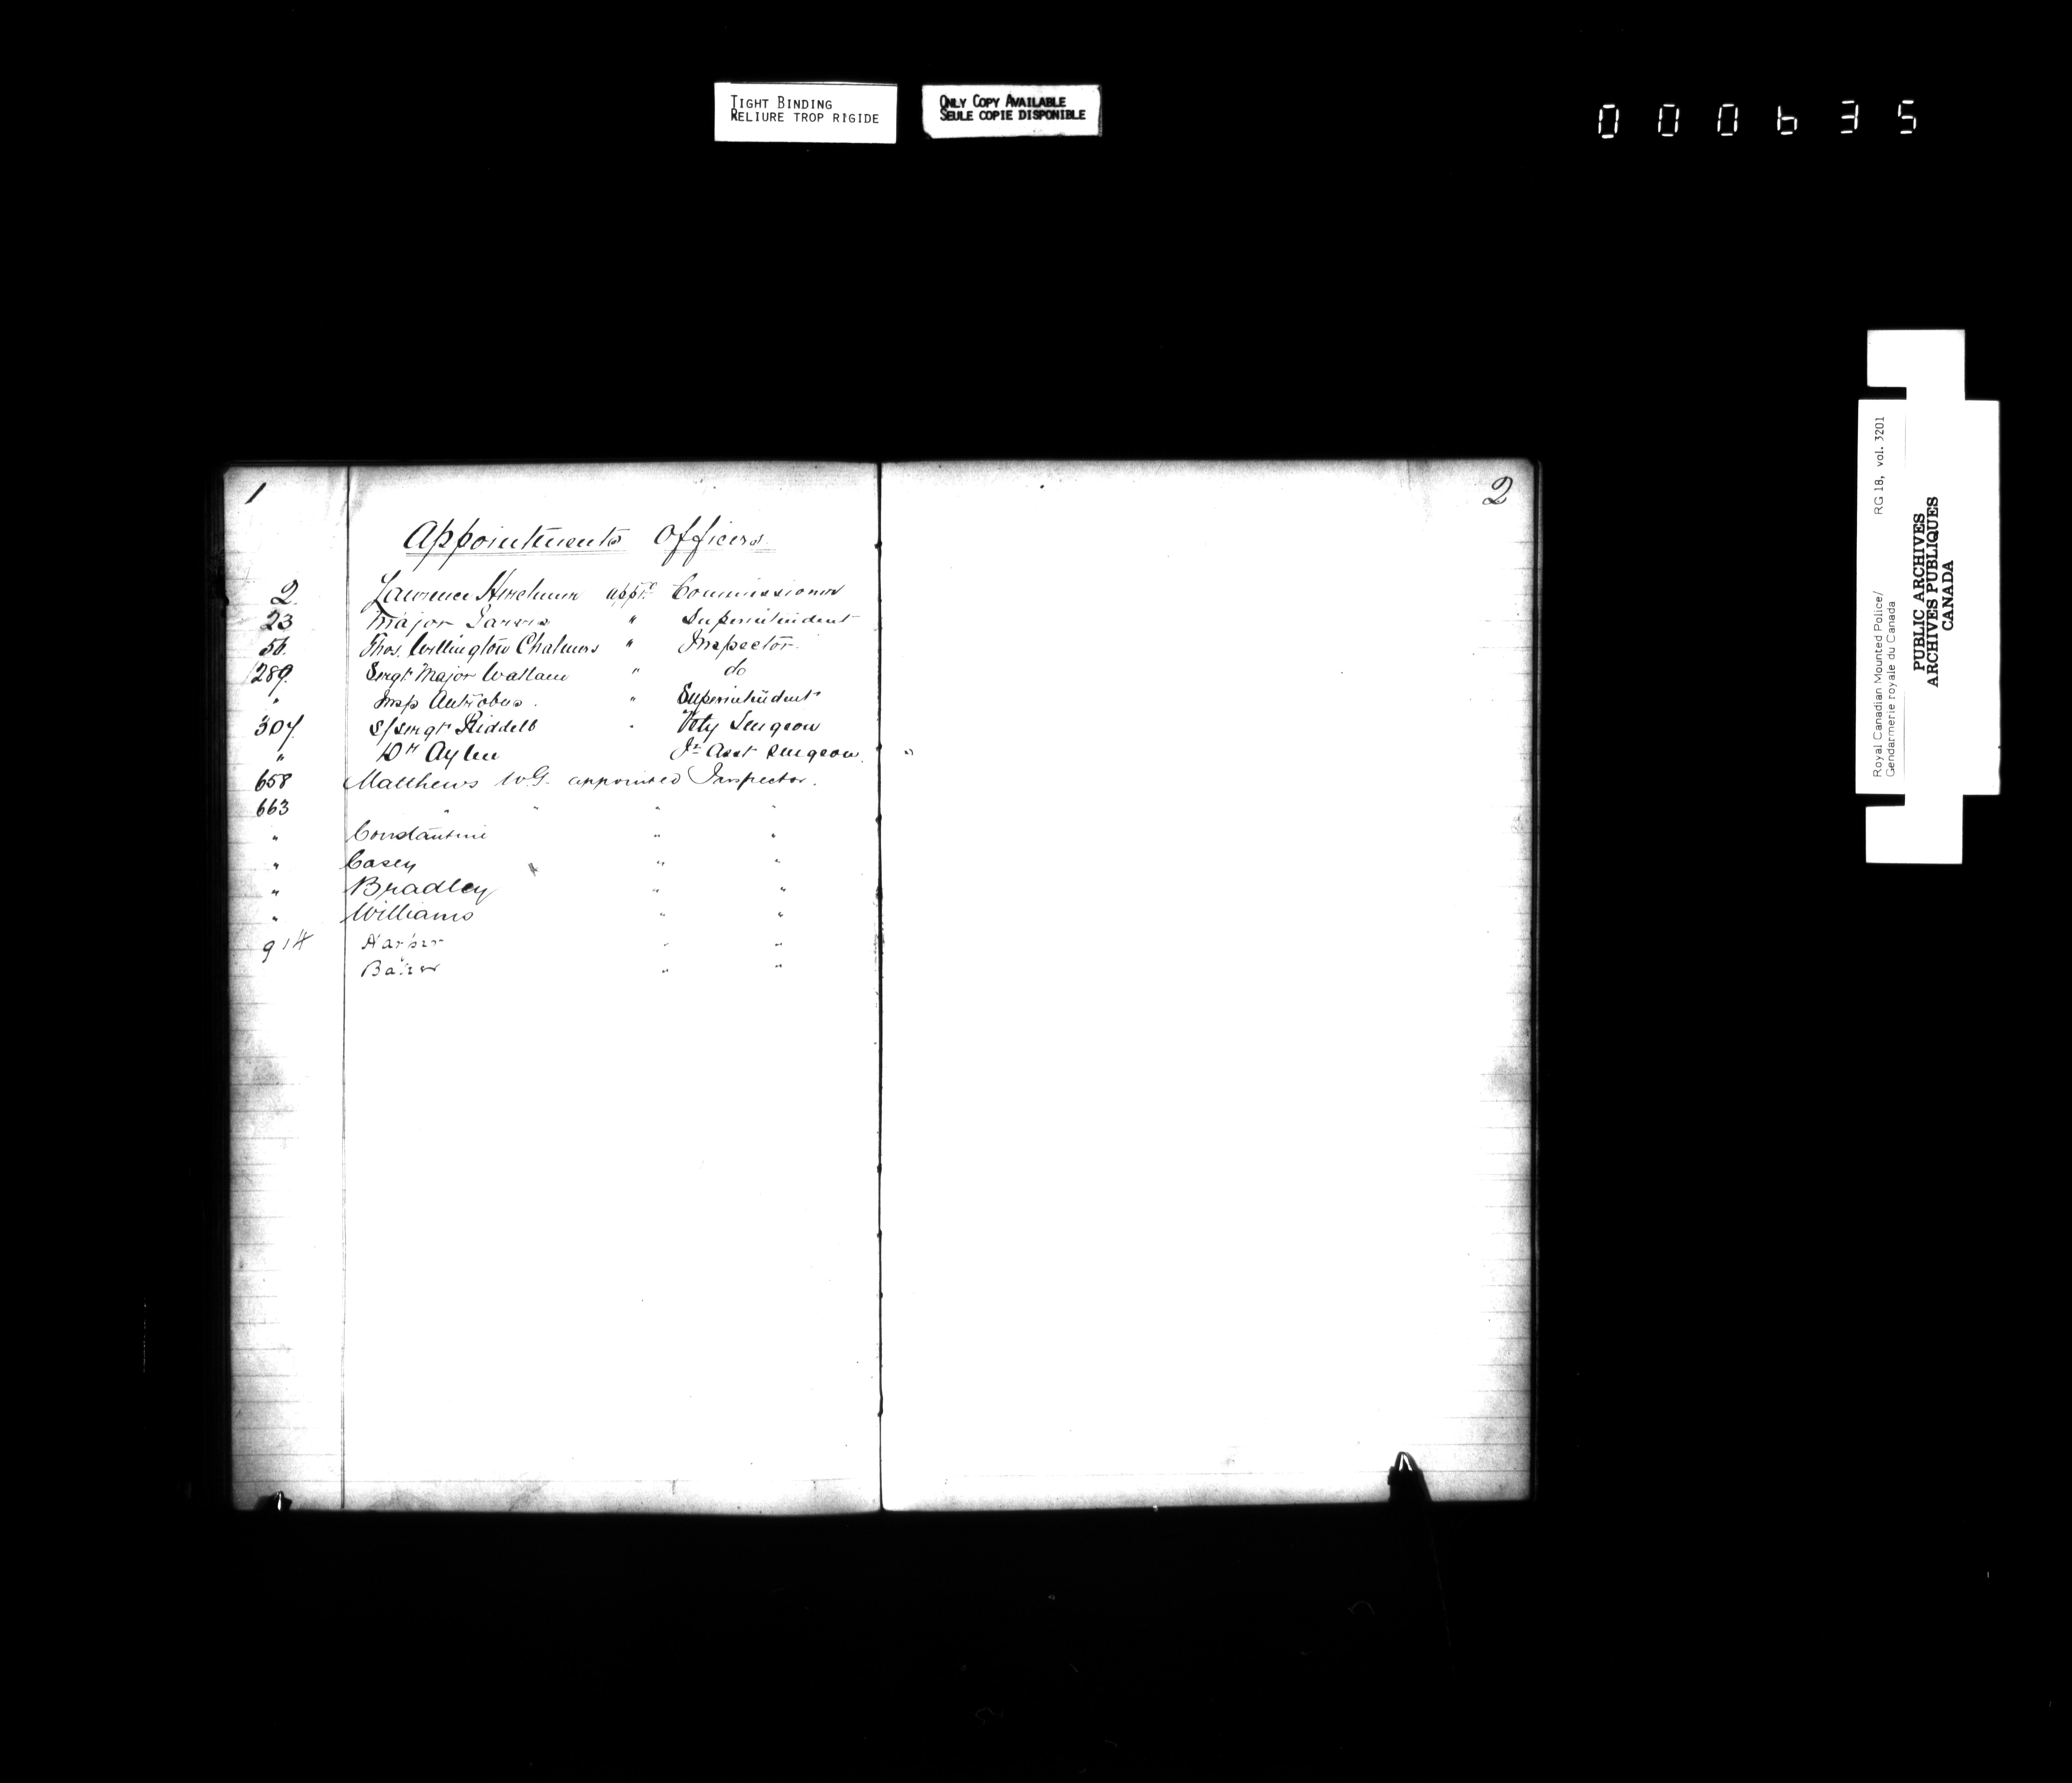 TIGHT BINDING
RELIURE TROP RIGIDE
ONLY COPY AVAILABLE
SEULE COPIE DISPONIBLE
000635
1
Appointments Officers
2. Lawrence Herchmer appt. Commissioner
23 Major Jarvis " Superintendent
56. Thos. Wellington Chalmers " Inspector.
289. Sergt Major Wattam " do
" Insp Antrobus . " Superintendent
307 S/Sergt Riddell " Vety Surgeon
" Dr Aylen Jr Asst Surgeon. "
658 Matthews W.G. appointed Inspector.
663 " " " "
" Constantine " "
" Casey " "
" Bradley " "
" Williams " "
914 Harper " "
Baker " "
2
Royal Canadian Mounted Police/ RG 18, vol. 3201
Gendarmerie royale du Canada
PUBLIC ARCHIVES
ARCHIVES PUBLIQUES
CANADA